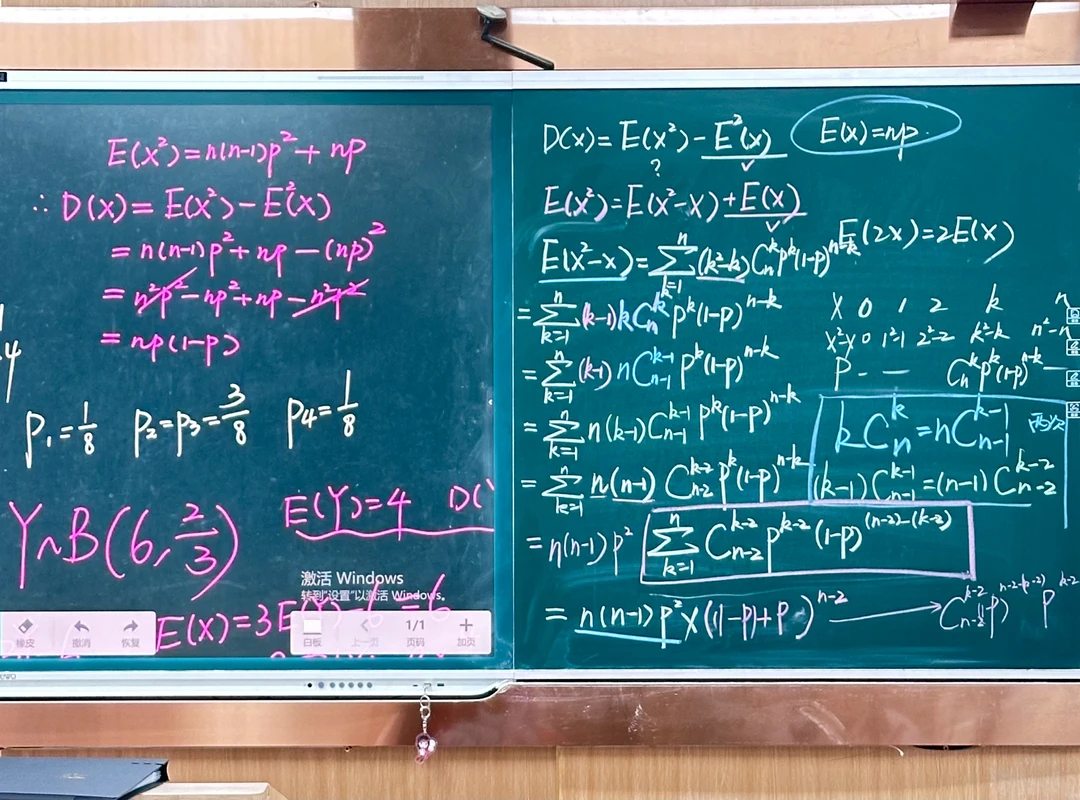 E(x²)=n(n-1)p²+np
∴D(x)=E(x²)-E²(x)
=n(n-1)p²+np-(np)²
=n²p²-np²+np-n²p²
=np(1-p)
4
P₁=1/8 P₂=P₃=3/8 P4=1/8
Y~B(6,2/3)
E(Y)=4 D(Y
E(X)=3E(Y)-6=6
激活 Windows
转到“设置”以激活 Windows。
橡皮 撤消 恢复 白板 上一页 1/1 页码 加页
D(x)=E(x²)-E²(x) E(x)=np.
?
E(x²)=E(x²-x)+E(x)
E(2x)=2E(x)
E(x²-x)=∑ₖ₌₁ⁿ(k²-k)Cₙᵏpᵏ(1-p)ⁿ⁻ᵏ
=∑ₖ₌₁ⁿ(k-1)kCₙᵏpᵏ(1-p)ⁿ⁻ᵏ
=∑ₖ₌₁ⁿ(k-1)nCₙ₋₁ᵏ⁻¹pᵏ(1-p)ⁿ⁻ᵏ
=∑ₖ₌₁ⁿn(k-1)Cₙ₋₁ᵏ⁻¹pᵏ(1-p)ⁿ⁻ᵏ
=∑ₖ₌₁ⁿn(n-1)Cₙ₋₂ᵏ⁻²pᵏ(1-p)ⁿ⁻ᵏ
=n(n-1)p²∑ₖ₌₁ⁿCₙ₋₂ᵏ⁻²pᵏ⁻²(1-p)⁽ⁿ⁻²⁾⁻⁽ᵏ⁻²⁾
=n(n-1)p²×((1-p)+p)ⁿ⁻²
X 0 1 2 k n
x²-x 0 1²-1 2²-2 k²-k n²-n
P - — Cₙᵏpᵏ(1-p)ⁿ⁻ᵏ —
kCₙᵏ=nCₙ₋₁ᵏ⁻¹
(k-1)Cₙ₋₁ᵏ⁻¹=(n-1)Cₙ₋₂ᵏ⁻²